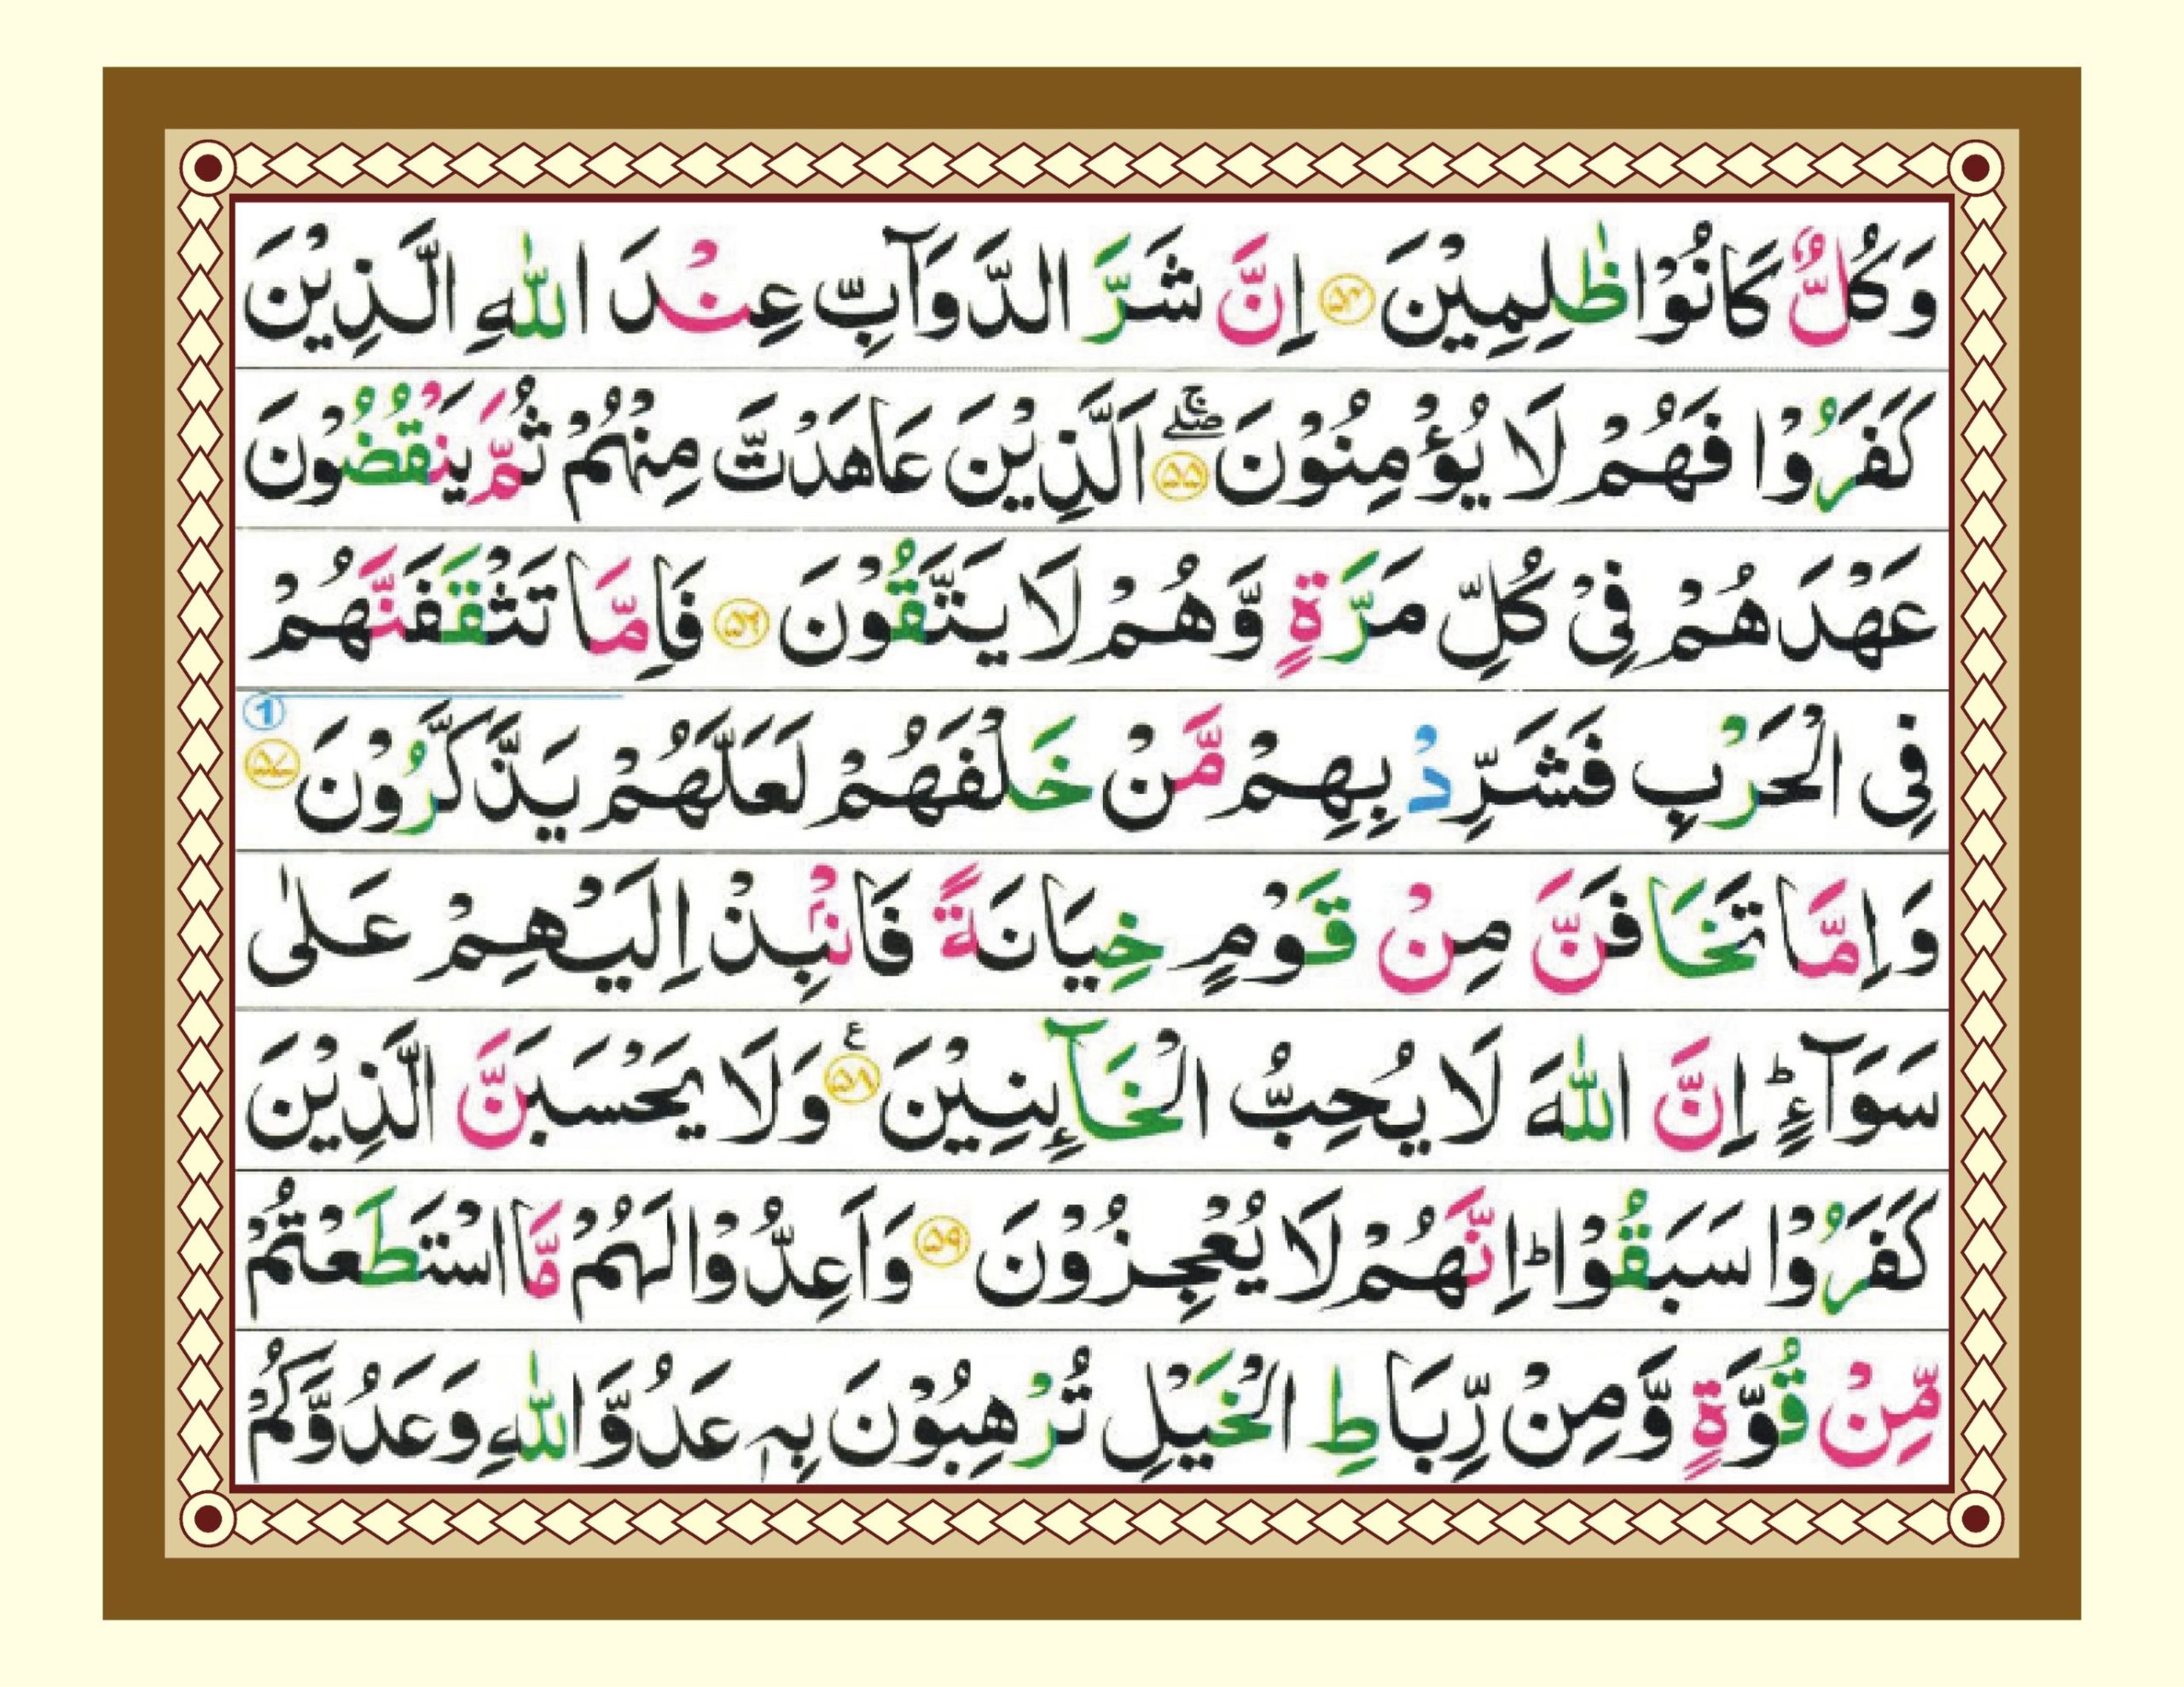 وَكُلٌّ كَانُوْا ظٰلِمِيْنَ ۝۵۴ اِنَّ شَرَّ الدَّوَآبِّ عِنْدَ اللّٰهِ الَّذِيْنَ
كَفَرُوْا فَهُمْ لَا يُؤْمِنُوْنَ ۖۚ ۝۵۵ اَلَّذِيْنَ عَاهَدْتَّ مِنْهُمْ ثُمَّ يَنْقُضُوْنَ
عَهْدَهُمْ فِيْ كُلِّ مَرَّةٍ وَّهُمْ لَا يَتَّقُوْنَ ۝۵۶ فَاِمَّا تَثْقَفَنَّهُمْ
1
فِي الْحَرْبِ فَشَرِّدْ بِهِمْ مَّنْ خَلْفَهُمْ لَعَلَّهُمْ يَذَّكَّرُوْنَ ۝۵۷
وَاِمَّا تَخَافَنَّ مِنْ قَوْمٍ خِيَانَةً فَانْۢبِذْ اِلَيْهِمْ عَلٰى
سَوَآءٍ ؕ اِنَّ اللّٰهَ لَا يُحِبُّ الْخَآئِنِيْنَ ۝۵۸ ع وَلَا يَحْسَبَنَّ الَّذِيْنَ
كَفَرُوْا سَبَقُوْا ؕ اِنَّهُمْ لَا يُعْجِزُوْنَ ۝۵۹ وَاَعِدُّوْا لَهُمْ مَّا اسْتَطَعْتُمْ
مِّنْ قُوَّةٍ وَّمِنْ رِّبَاطِ الْخَيْلِ تُرْهِبُوْنَ بِهٖ عَدُوَّ اللّٰهِ وَعَدُوَّكُمْ